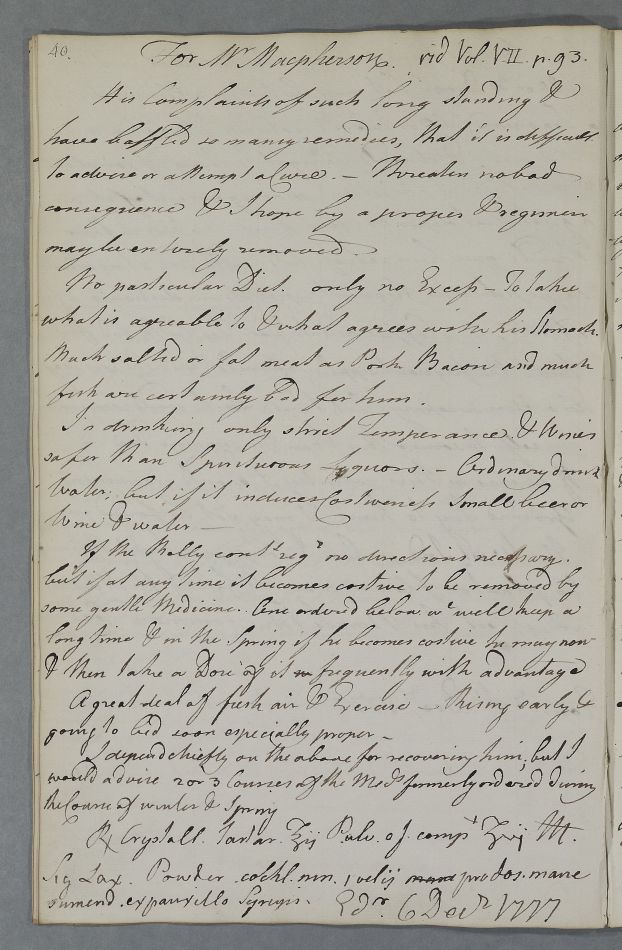 40.
For Mr Macpherson. vid Vol. VII p. 93.
His Complaints of such long standing &
have baffled so many remedies, that it is difficult
to advise or attempt a Cure. – Threaten no bad
consequence & I hope by a proper & regimen
may be entirely removed.
No particular Diet. only no Excess – To take
what is agreable to & what agrees with his Stomach.
Much salted or fat meat as Pork Bacon and much
fish are certainly bad for him.
In drinking only strict Temperance. & Wine is
safer than Spirituous Liquors. – Ordinary drink
Water, but if it induces Costiveness Small beer or
Wine & water –
If the Belly cont.s reg.r no directions necessary.
but if at any time it becomes costive to be removed by
some gentle Medicine. One ordered below wd well keep a
long time & in the Spring if he becomes costive he may now
& then take a Dose of it frequently with advantage
A great deal of fresh air & Exercise – Rising early &
going to bed soon especially proper –
I depend chiefly on the above for recovering him, but I
would advise 2 or 3 Courses of the Meds formerly ordered during
the Course of winter & Spring
℞ Crystall. Tartar. ℥ij Pulv. comps ℥vj M.
Sig Lax. Powder. cochl. min. j vel ij pro dos. mane
sumend. ex pauxillo Syrupi. Edr. 6 Decr 1777